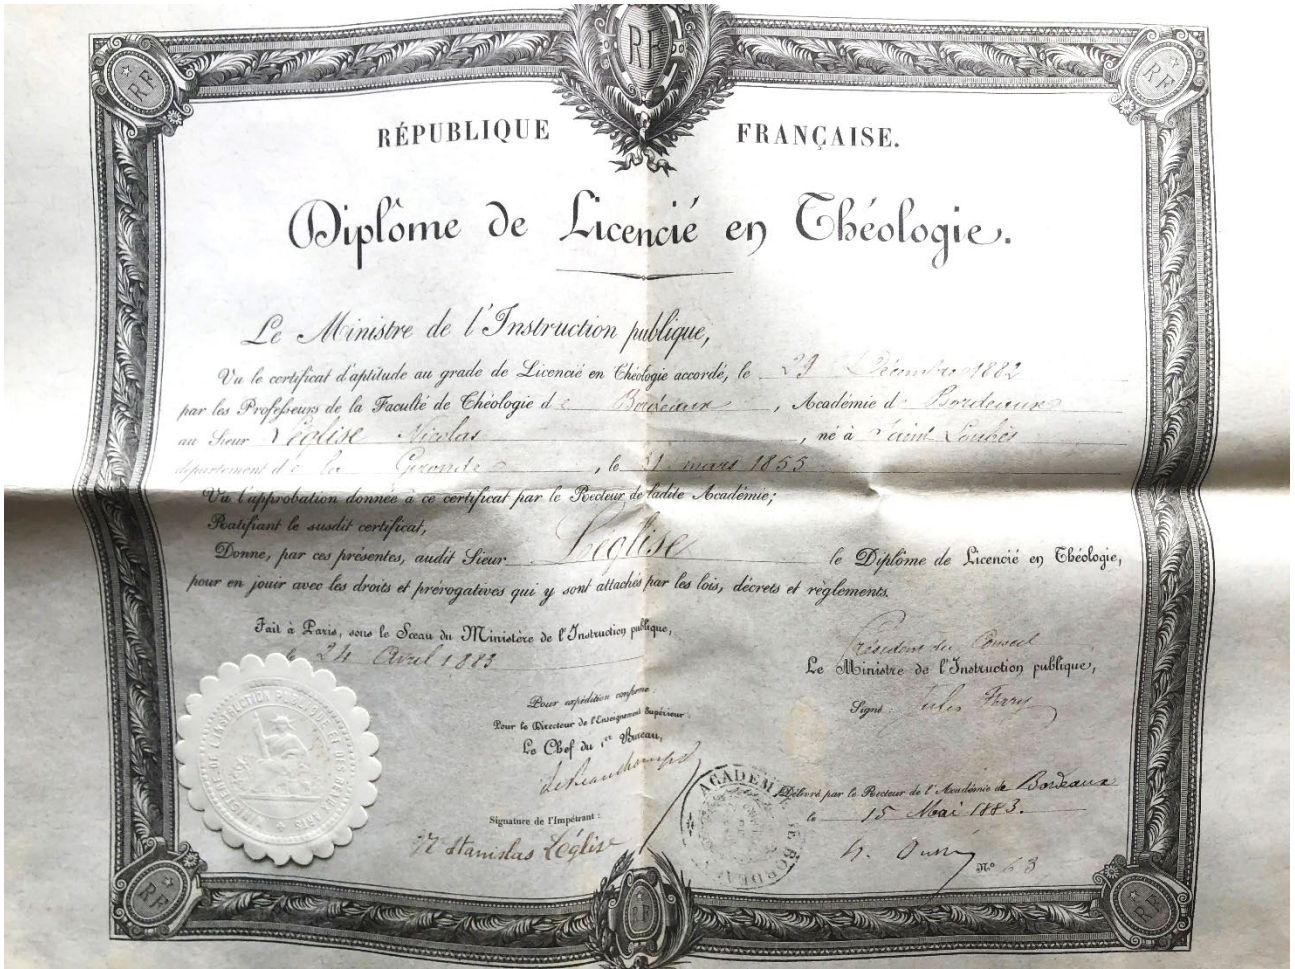 RF
RF
RF
RÉPUBLIQUE FRANÇAISE.
Diplôme de Licencié en Théologie.
Le Ministre de l'Instruction publique,
Vu le certificat d'aptitude au grade de Licencié en Théologie accordé, le 29 Décembre 1882
par les Professeurs de la Faculté de Théologie de Bordeaux, Académie d Bordeaux
au Sieur Léglise Nicolas, né à Saint Loubès
département de la Gironde, le mars 1855
Vu l'approbation donnée à ce certificat par le Recteur de ladite Académie;
Ratifiant le susdit certificat,
Donne, par ces présentes, audit Sieur Léglise le Diplôme de Licencié en Théologie,
pour en jouir avec les droits et prérogatives qui y sont attachés par les lois, décrets et règlements.
Fait à Paris, sous le Sceau du Ministère de l'Instruction publique,
le 24 Avril 1883
Président du Conseil
Le Ministre de l'Instruction publique,
Signé: Jules Ferry
Pour expédition conforme
Pour le Directeur de l'Enseignement Supérieur
Le Chef du 1er Bureau,
de Beauchamps
MINISTÈRE DE L'INSTRUCTION PUBLIQUE ET DES BEAUX ARTS
Signature de l'Impétrant:
N Stanislas Léglise
ACADÉMIE DE BORDEAUX
Délivré par le Recteur de l'Académie de Bordeaux
le 15 Mai 1883.
H. Ouvré
N° 63
RF
RF
RF